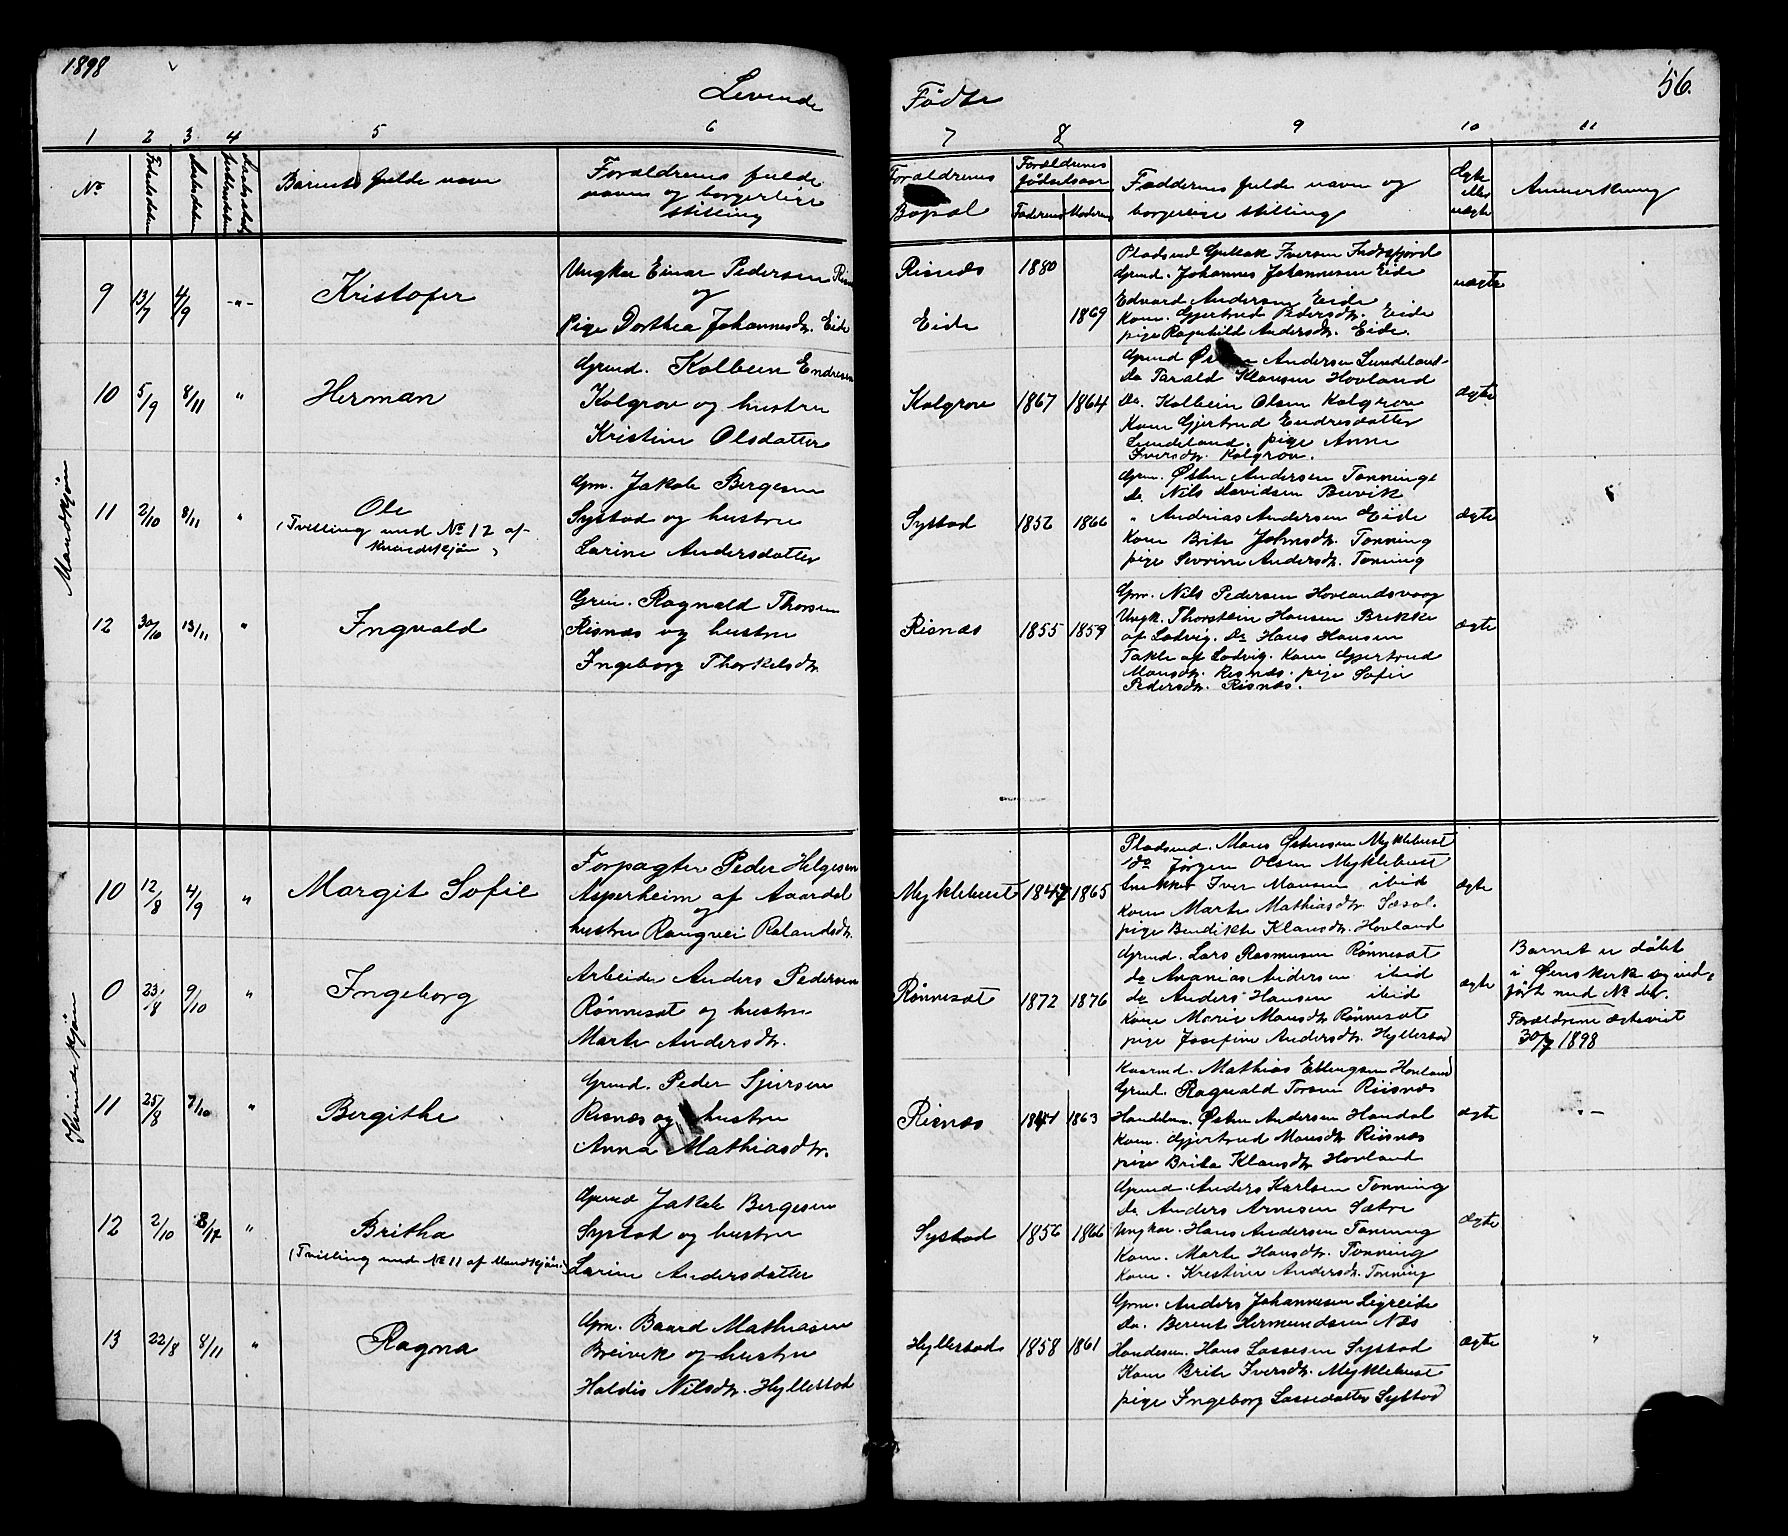 1898
Levende
Fødte
56.
1 2 3 4 5 6
7 8 9 10 11
No
Fødselsdatum
Daabsdatum
Barnets fulde navn
Forældrenes fulde
navn og borgerlige
stilling
Forældrenes
Bopæl
Forældrenes
fødselsaar
Faderens Moderens
Faddernes fulde navn og
borgerlige stilling
Ægte
eller
uægte
Anmerkning
Mandkjøn
9 13/7 4/9 -"- Kristofer
Ungkar Einar Pedersen Risnæs
og
Pige Dorthea Johannesdtr. Eide
Risnæs 1880
Eide 1869
Pladsmd Gullak Iversen Indrefjord
Grmd. Johannes Johannesen Eide
Edvard Andersen Eide
Kone. Gjertrud Pedersdtr. Eide
pige Ragnhild Andersdtr. Eide.
uægte
10 5/9 8/11 " Herman
Grmd. Kolbein Endresen
Kolgrov og hustru
Kristine Olsdatter
Kolgrov 1867 1864
Grmd Andersen Lundeland
do Tarald Klausen Hovland
do. Kolbein Olsen Kolgrov
Kone Gjertrud Endresdatter
Lundeland. pige Anne
Iversdtr. Kolgrov.
ægte
11 2/10 8/11 " Ole
(Tvilling med No 12 af
Kvindekjøn)
Gm. Jakob Bergesen
Systad og hustru
Larine Andersdatter
Systad 1856 1866
Grm. Østen Andersen Tonninge
do. Nils Davidsen Buvik
" Andrias Andersen Eide
Kone Brite Johnsdtr. Tonning
pige Sevrine Andersdtr. Tonning
ægte
12 30/10 13/11 " Ingvald
Grm. Ragnald Thorsen
Risnæs og hustru
Ingeborg Thorkelsdtr
Risnæs 1855 1859
Gm. Nils Pedersen Hovlandsvaag
Ungk. Thorstein Hansen Brekke
af Ladvig. Do Hans Hansen
Takle af Ladvig. Kone Gjertrud
Monsdtr. Risnæs. pige Sofie
Pedersdtr. Risnæs.
ægte
Kvindekjøn
10 12/8 4/9 " Margit Sofie
Forpagter Peder Helgesen
Asperheim af Aardal
og
hustru Rangvei Rolandsdtr.
Myklebust 1847 1865
Pladsmd. Mons Østensen Myklebust
do Jørgen Olsen Myklebust
Snekker Iver Monsen ibid
Kone Marte Mathiasdtr. Sæsol.
pige Bendikte Klausdtr. Hovland
ægte
0 23/8 9/10 " Ingeborg
Arbeider Anders Pedersen
Rønneset og hustru
Marte Andersdtr.
Rønneset 1872 1876
Grmd. Lars Rasmusen Rønneset
do Ananias Andersen ibid
do Anders Hansen ibid
Kone Marie Monsdtr Rønneset
pige Josefine Andersdtr. Hyllestad
ægte
Barnet er døbt
i Øens kirke og ind-
ført med No der.
Forældrene ægteviet
30/7 1898
11 25/8 7/10 " Bergithe
Grmd. Peder Sjursen
Risnæs og hustru
Anna Mathiasdtr.
Risnæs 1841 1863
Kaarmd. Mathias Ellingsen Hovland
Grmd. Ragnald Torsen Risnæs
Handelsm. Østen Andersen Hovdal
Kone. Gjertrud Monsdtr Risnæs
pige Brita Klausdtr Hovland
ægte
12 2/10 8/17 " Britha
(Tvilling med No 11 af Mandkjøn.)
Grmd Jakob Bergesen
Systad og hustru
Larine Andersdatter
Systad 1856 1866
Grmd. Anders Karlsen Tonning
do. Anders Arnesen Sætre
Ungkar. Hans Andersen Tonning
Kone. Marte Hansdtr. Tonning
Kone. Kristine Andersdtr. Tonning
ægte
13 22/8 8/11 " Ragna
Gm. Baard Mathiasen
Breivik og hustru
Haldis Nilsdtr. Hyllestad
Hyllestad 1858 1861
Grm. Anders Johannesen Ligreide
do. Berent Hermundsen Næs
Handesm. Hans Lassesen Systad
Kone Brite Iversdtr. Myklebust
pige Ingeborg Lassedatter Systad
ægte "